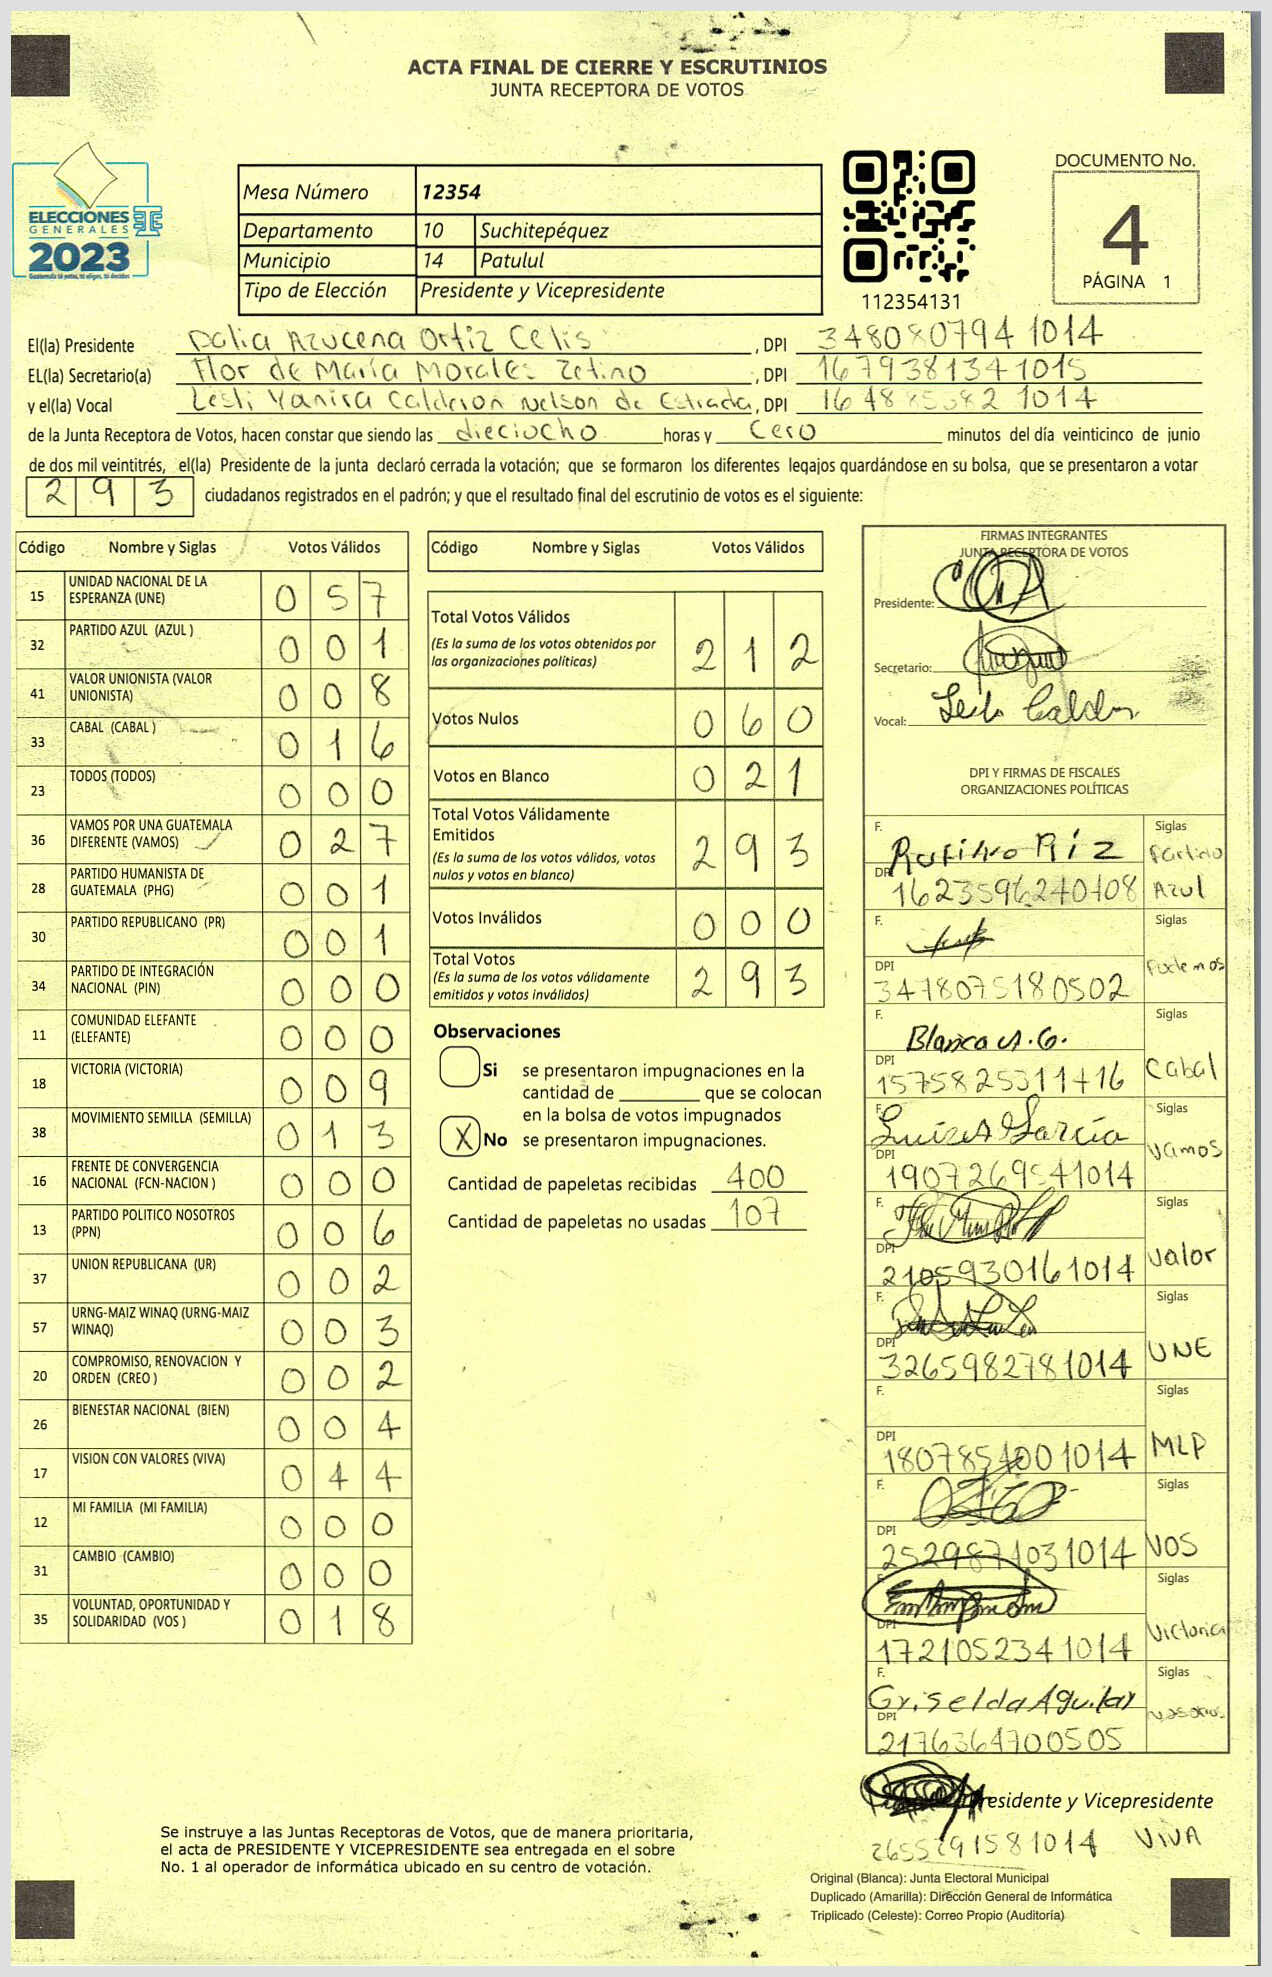 ACTA FINAL DE CIERRE Y ESCRUTINIOS
JUNTA RECEPTORA DE VOTOS
ELECCIONES
GENERALES
2023
Mesa Número 12354
Departamento 10 Suchitepéquez
Municipio 14 Patulul
Tipo de Elección Presidente y Vicepresidente
112354131
DOCUMENTO No.
4
PÁGINA 1
El(la) Presidente Dalia Azucena Ortiz Celis, DPI 348080794 1014
EL(la) Secretario(a) Flor de María Morales Zetino, DPI 167938134 1015
y el(la) Vocal Lesli Yanira Calderon Nelson de Estrada, DPI 1014
de la Junta Receptora de Votos, hacen constar que siendo las dieciocho horas y cero minutos del día veinticinco de junio
de dos mil veintitrés, el(la) Presidente de la junta declaró cerrada la votación; que se formaron los diferentes legajos guardándose en su bolsa, que se presentaron a votar
293 ciudadanos registrados en el padrón; y que el resultado final del escrutinio de votos es el siguiente:
Código Nombre y Siglas Votos Válidos
15 UNIDAD NACIONAL DE LA ESPERANZA (UNE) 0 5 7
32 PARTIDO AZUL (AZUL ) 0 0 1
41 VALOR UNIONISTA (VALOR UNIONISTA) 0 0 8
33 CABAL (CABAL ) 0 1 6
23 TODOS (TODOS) 0 0 0
36 VAMOS POR UNA GUATEMALA DIFERENTE (VAMOS) 0 2 7
28 PARTIDO HUMANISTA DE GUATEMALA (PHG) 0 0 1
30 PARTIDO REPUBLICANO (PR) 0 0 1
34 PARTIDO DE INTEGRACIÓN NACIONAL (PIN) 0 0 0
11 COMUNIDAD ELEFANTE (ELEFANTE) 0 0 0
18 VICTORIA (VICTORIA) 0 0 9
38 MOVIMIENTO SEMILLA (SEMILLA) 0 1 3
16 FRENTE DE CONVERGENCIA NACIONAL (FCN-NACION ) 0 0 0
13 PARTIDO POLITICO NOSOTROS (PPN) 0 0 6
37 UNION REPUBLICANA (UR) 0 0 2
57 URNG-MAIZ WINAQ (URNG-MAIZ WINAQ) 0 0 3
20 COMPROMISO, RENOVACION Y ORDEN (CREO ) 0 0 2
26 BIENESTAR NACIONAL (BIEN) 0 0 4
17 VISION CON VALORES (VIVA) 0 4 4
12 MI FAMILIA (MI FAMILIA) 0 0 0
31 CAMBIO (CAMBIO) 0 0 0
35 VOLUNTAD, OPORTUNIDAD Y SOLIDARIDAD (VOS ) 0 1 8
Código Nombre y Siglas Votos Válidos
Total Votos Válidos 2 1 2
(Es la suma de los votos obtenidos por
las organizaciones políticas)
Votos Nulos 0 6 0
Votos en Blanco 0 2 1
Total Votos Válidamente
Emitidos 2 9 3
(Es la suma de los votos válidos, votos
nulos y votos en blanco)
Votos Inválidos 0 0 0
Total Votos 2 9 3
(Es la suma de los votos válidamente
emitidos y votos inválidos)
Observaciones
Si se presentaron impugnaciones en la
cantidad de ________ que se colocan
en la bolsa de votos impugnados
X No se presentaron impugnaciones.
Cantidad de papeletas recibidas 400
Cantidad de papeletas no usadas 107
FIRMAS INTEGRANTES
JUNTA RECEPTORA DE VOTOS
Presidente:
Secretario:
Vocal:
DPI Y FIRMAS DE FISCALES
ORGANIZACIONES POLÍTICAS
F. Siglas
Partido
DPI 1623596240408 Azul
F. Siglas
DPI Podemos
3478075180502
F. Blanca A. G. Siglas
DPI 1575825311416 Cabal
F. Luis A García Siglas
DPI 1907269541014 Vamos
F. Siglas
DPI 2105930161014 Valor
F. Siglas
DPI 3265982781014 UNE
F. Siglas
DPI 1807854001014 MLP
F. Siglas
DPI 2529874031014 VOS
F. Siglas
DPI 1721052341014 Victoria
F. Griselda Aguilar Siglas
DPI 2176364700505 Nosotros
Presidente y Vicepresidente
2655291581014 VIVA
Se instruye a las Juntas Receptoras de Votos, que de manera prioritaria,
el acta de PRESIDENTE Y VICEPRESIDENTE sea entregada en el sobre
No. 1 al operador de informática ubicado en su centro de votación.
Original (Blanca): Junta Electoral Municipal
Duplicado (Amarilla): Dirección General de Informática
Triplicado (Celeste): Correo Propio (Auditoría)